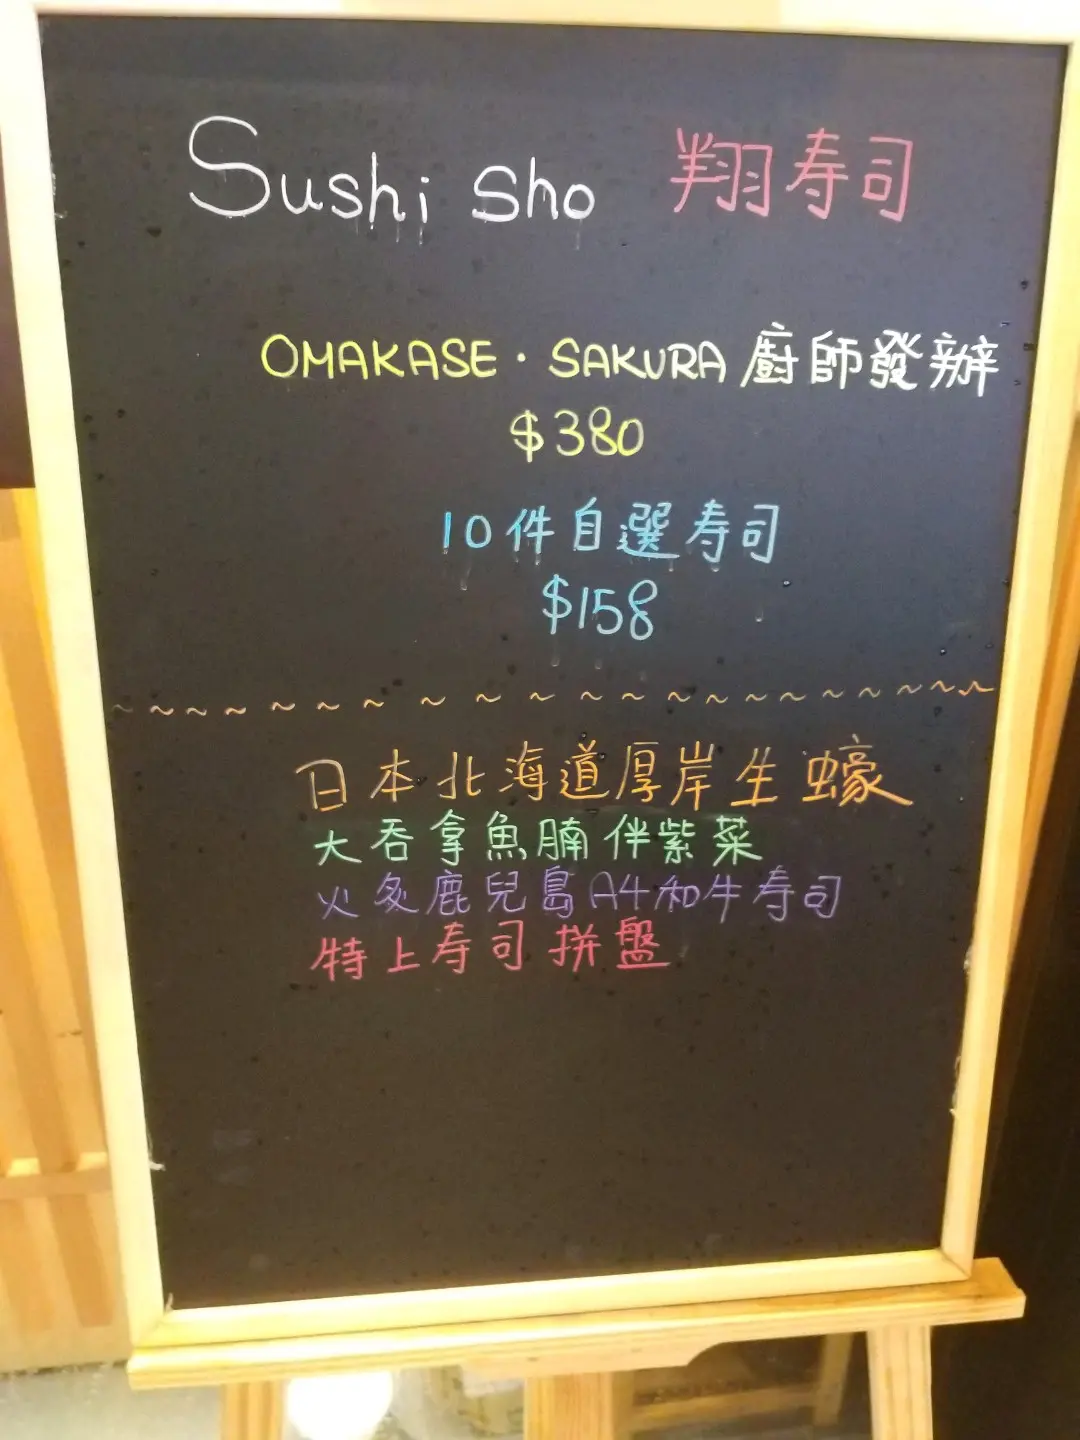 Sushi sho 翔寿司
OMAKASE · SAKURA 廚師發辦
$380
10件自選寿司
$158
~ ~ ~ ~ ~ ~ ~ ~ ~ ~ ~ ~ ~ ~ ~ ~ ~ ~ ~ ~
日本北海道厚岸生蠔
大吞拿魚腩伴紫菜
火炙鹿兒島A4和牛寿司
特上寿司拼盤